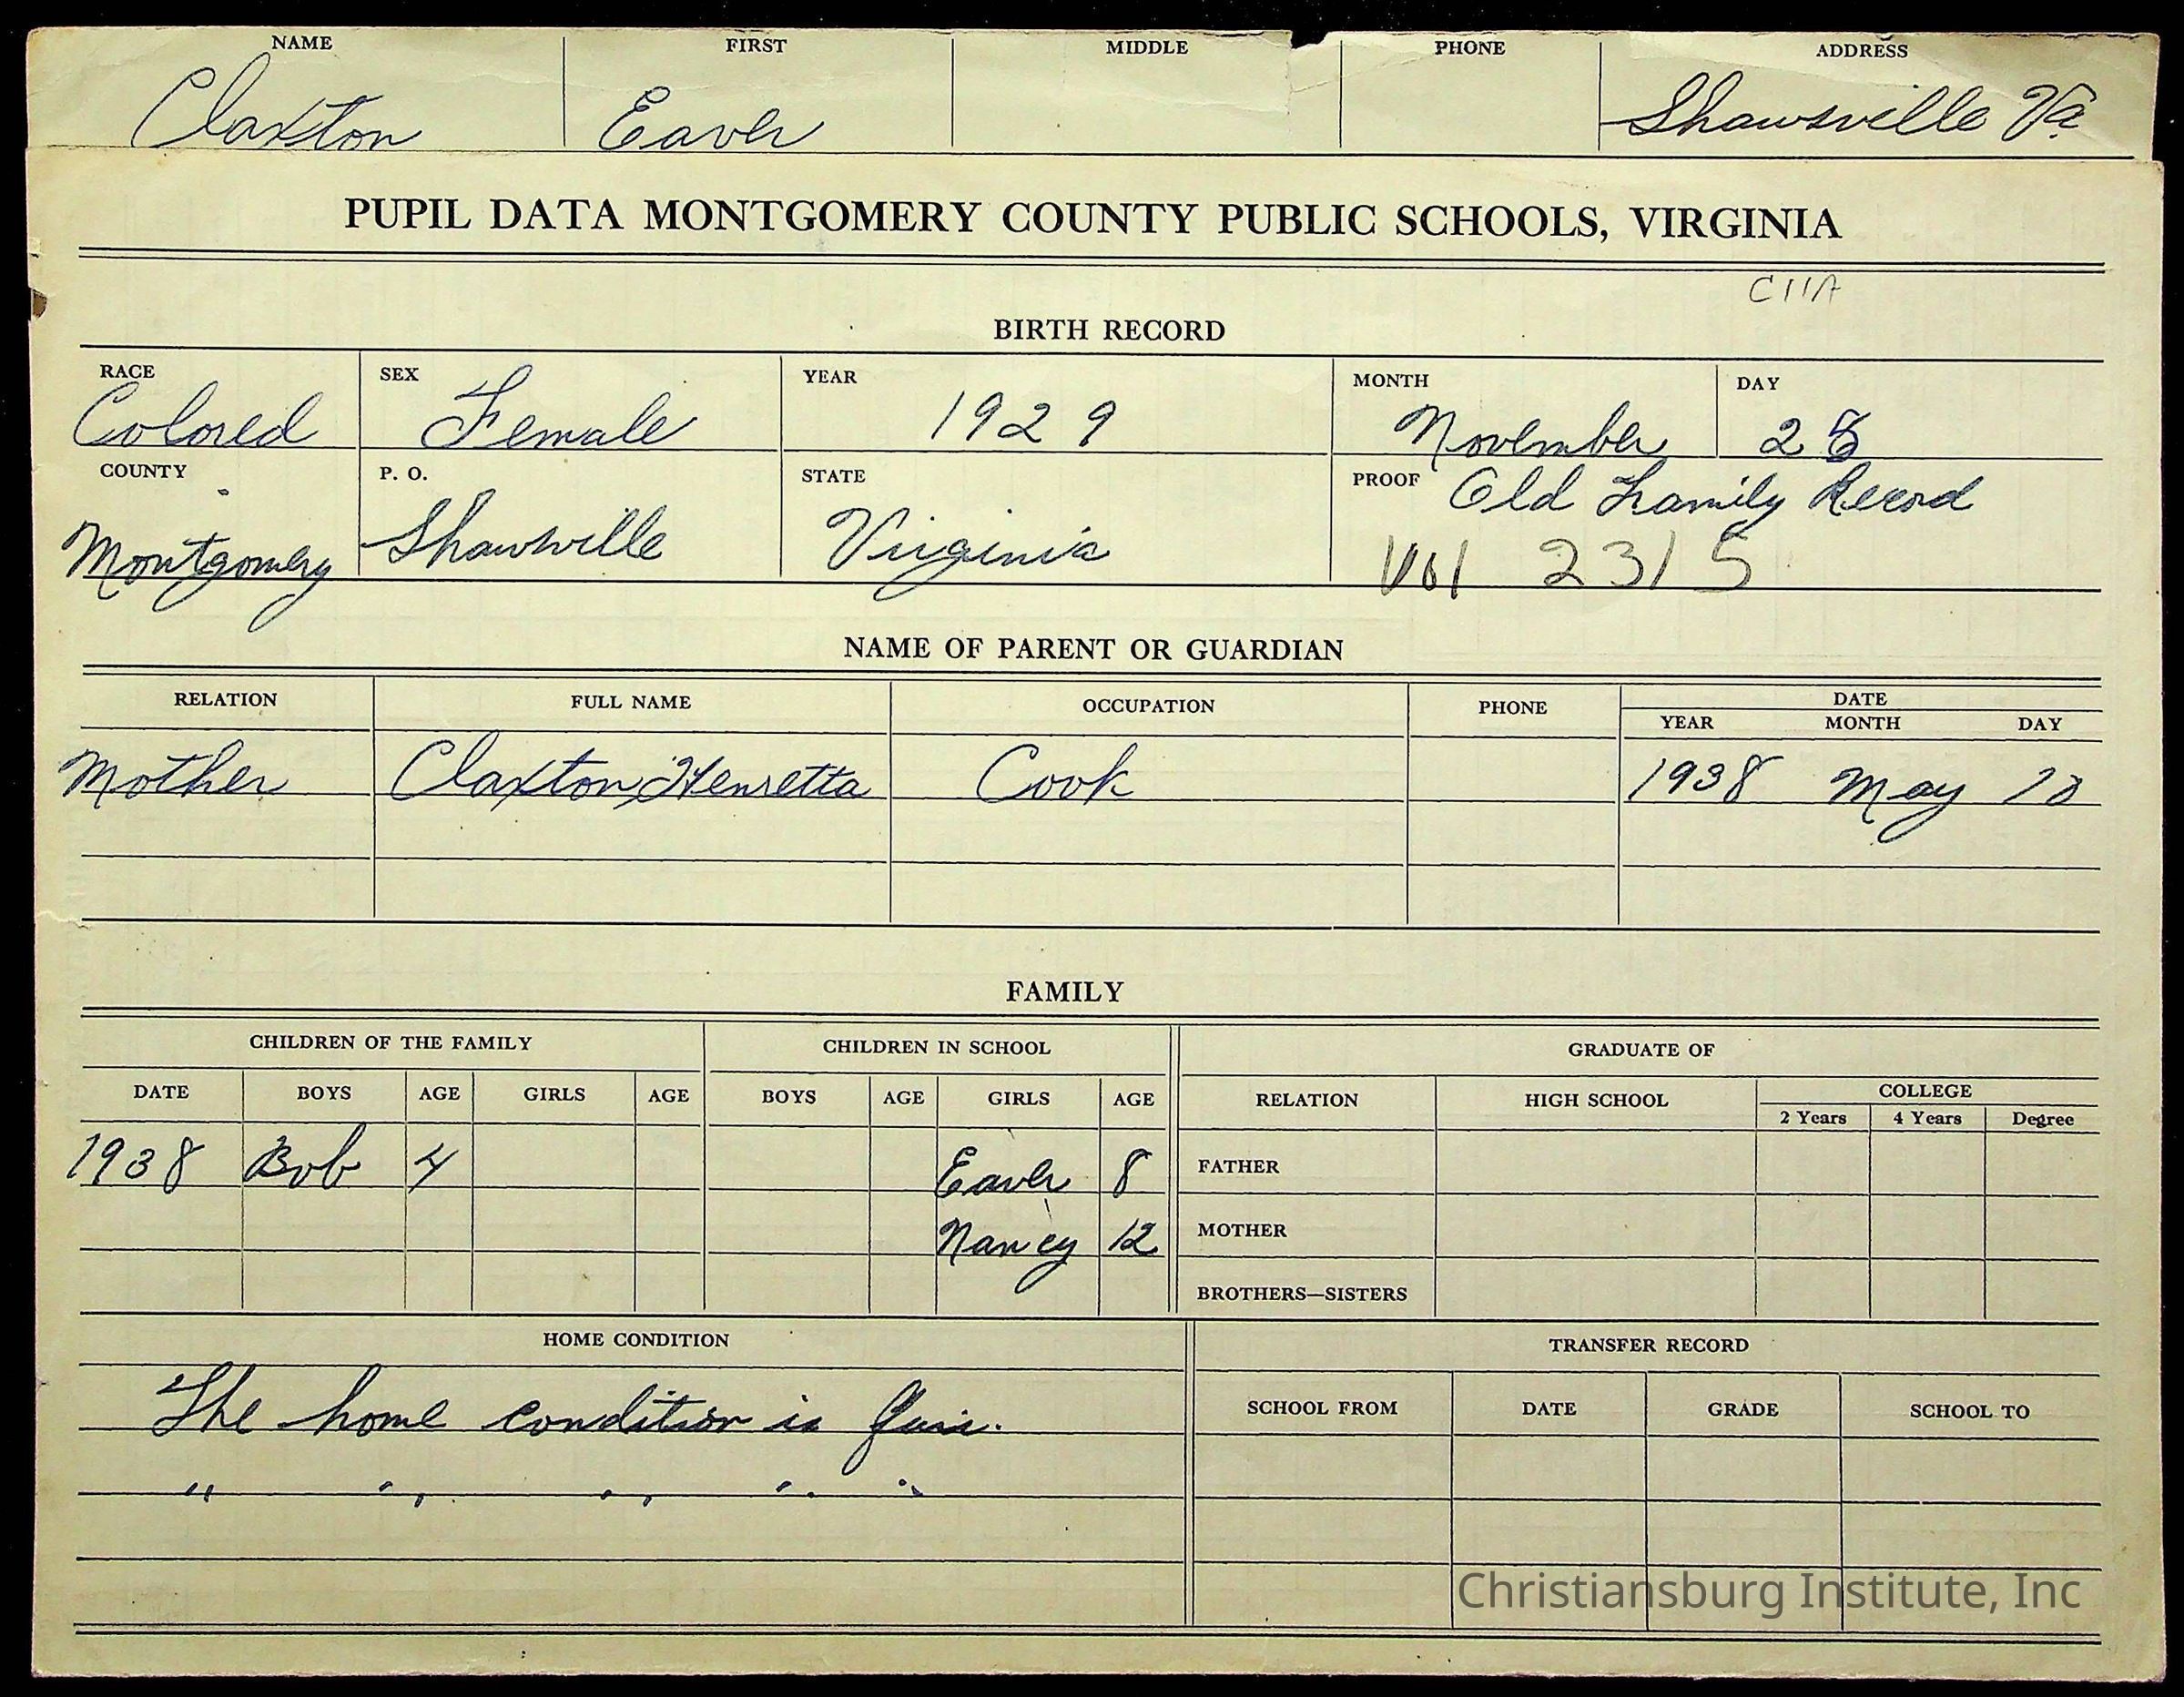 NAME FIRST MIDDLE PHONE ADDRESS
Claxton Eaver Shawsville Va.
PUPIL DATA MONTGOMERY COUNTY PUBLIC SCHOOLS, VIRGINIA
C11A
BIRTH RECORD
RACE SEX YEAR MONTH DAY
Colored Female 1929 November 28
COUNTY P. O. STATE PROOF Old Family Record
Montgomery Shawsville Virginia Vol 2315
NAME OF PARENT OR GUARDIAN
RELATION FULL NAME OCCUPATION PHONE DATE
YEAR MONTH DAY
Mother Claxton, Henretta Cook 1938 May
FAMILY
CHILDREN OF THE FAMILY CHILDREN IN SCHOOL GRADUATE OF
DATE BOYS AGE GIRLS AGE BOYS AGE GIRLS AGE RELATION HIGH SCHOOL COLLEGE
2 Years 4 Years Degree
1938 Bob 4 Eaver 8 FATHER
Nancy 12 MOTHER
BROTHERS—SISTERS
HOME CONDITION TRANSFER RECORD
The home condition is fair.
SCHOOL FROM DATE GRADE SCHOOL TO
" " " " "
Christiansburg Institute, Inc